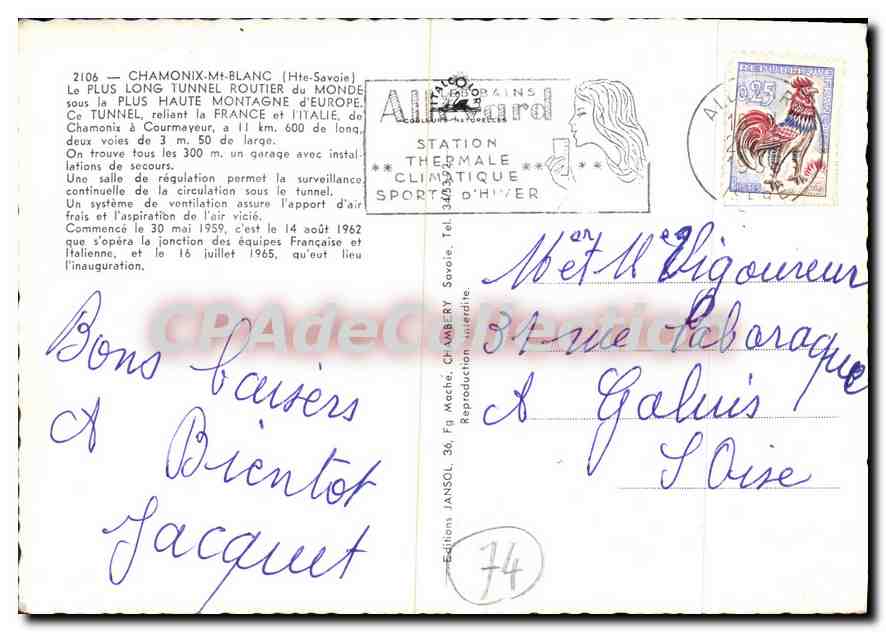 2106 — CHAMONIX-Mt-BLANC (Hte-Savoie)
Le PLUS LONG TUNNEL ROUTIER du MONDE
sous la PLUS HAUTE MONTAGNE d'EUROPE.
Ce TUNNEL, reliant la FRANCE et l'ITALIE, de
Chamonix à Courmayeur, a 11 km. 600 de long,
deux voies de 3 m. 50 de large.
On trouve tous les 300 m. un garage avec instal-
lations de secours.
Une salle de régulation permet la surveillance
continuelle de la circulation sous le tunnel.
Un système de ventilation assure l'apport d'air
frais et l'aspiration de l'air vicié.
Commencé le 30 mai 1959, c'est le 14 août 1962
que s'opéra la jonction des équipes Française et
Italienne, et le 16 juillet 1965, qu'eut lieu
l'inauguration.
LES BAINS
Allevard
COULEURS NATURELLES
STATION
THERMALE
CLIMATIQUE
SPORTS d'HIVER
0,25
Bons baisers
A Bientot
Jacquet
Editions JANSOL, 36, Fg Maché, CHAMBERY Savoie, Tel. 34/53-9
Reproduction interdite.
M et Vigoureur
31 rue
A
S Oise
74
CPAdeCollection